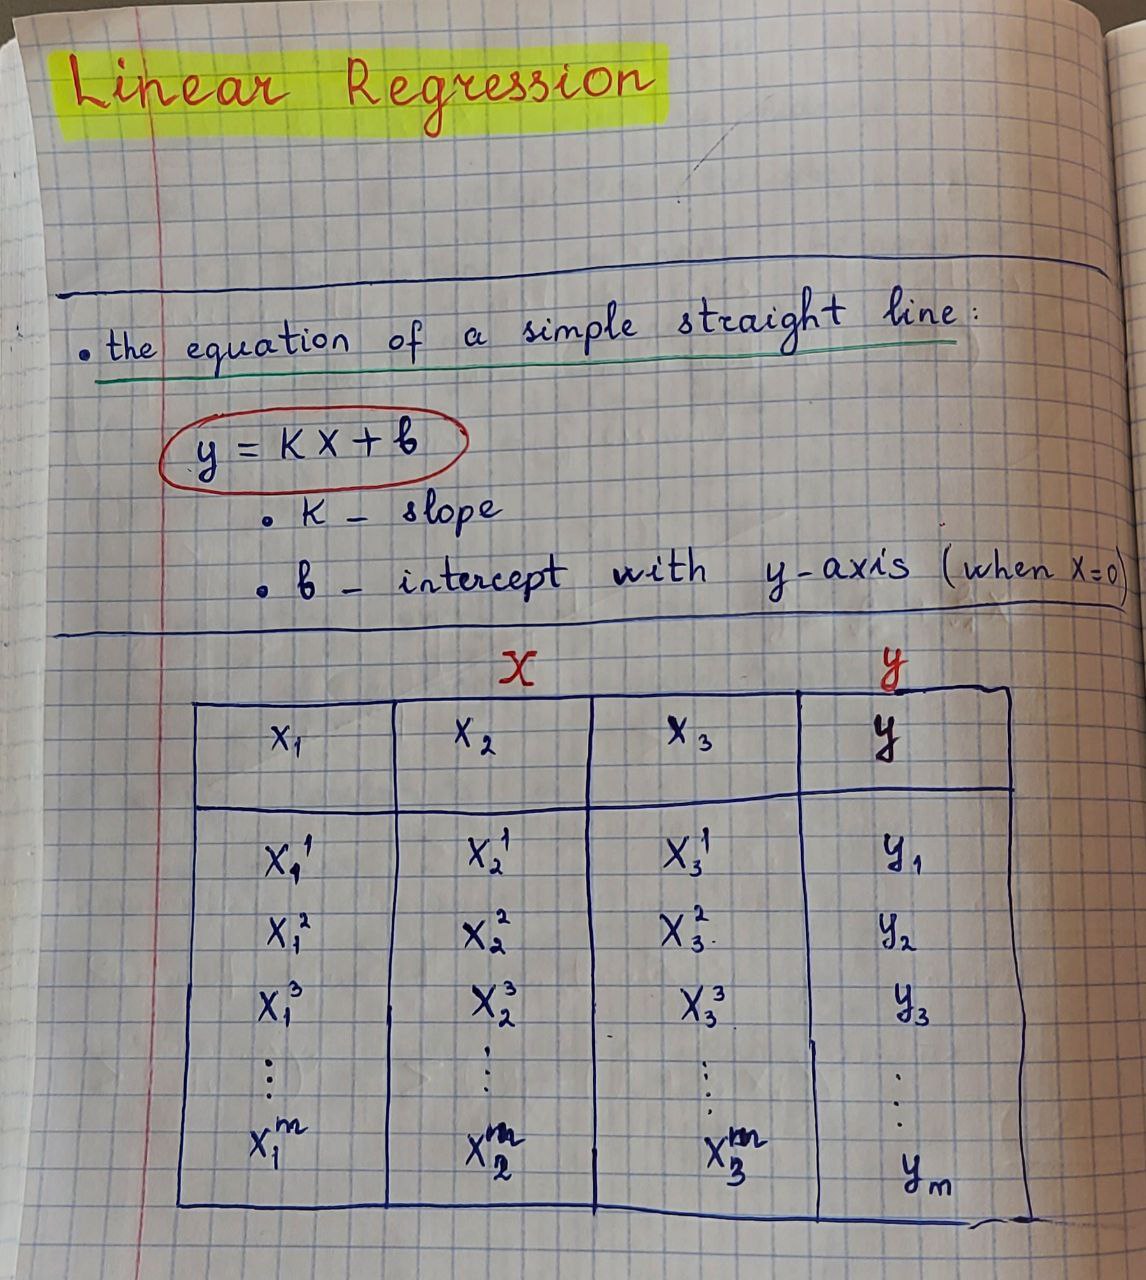 Linear Regression
• the equation of a simple straight line:
y = Kx + b
• K – slope
• b – intercept with y-axis (when x=0)
X y
x₁ x₂ x₃ y
x₁¹ x₂¹ x₃¹ y₁
x₁² x₂² x₃² y₂
x₁³ x₂³ x₃³ y₃
⋮ ⋮ ⋮ ⋮
x₁ᵐ x₂ᵐ x₃ᵐ yₘ